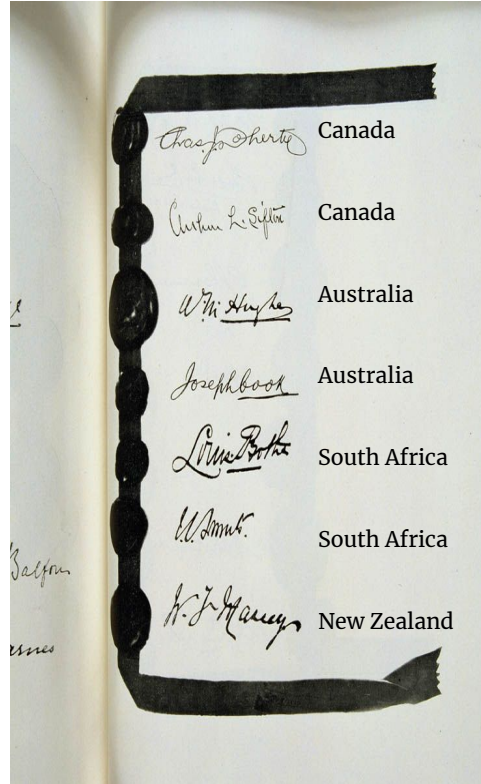 Chas. J. Doherty Canada
Arthur L. Sifton Canada
W M Hughes Australia
Joseph Cook Australia
Louis Botha South Africa
South Africa
W. F. Massey New Zealand
Balfour